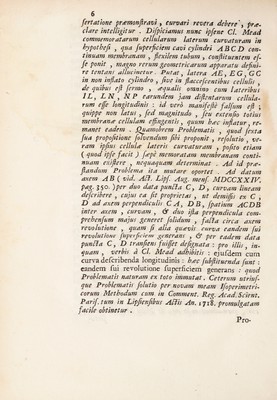 6
sertatione præmonstravi, curvari revera debere, præ-
clare intelligitur. Dispiciamus nunc ipsene Cl. Mead
commemoratarum cellularum laterum curvaturam in
hypothesi, qua superficiem cavi cylindri ABCD con-
tinuam membranam, flexilem tubum, constituentem ip-
se ponit, magno rerum geometricarum apparatu defini-
re tentans allucinetur. Putat, latera AE, EG, GC
in non inflato cylindro, sive in flaccescentibus cellulis,
de quibus est sermo, æqualis omnino cum lateribus
IL, LN, NP earundem jam distentarum cellula-
rum esse longitudinis: id verò manifestè falsum est;
quippe non latus, sed magnitudo, seu extensio totius
membranæ cellulam effingentis, quum hæc inflatur, re-
manet eadem. Quamobrem Problematis, quod sexta
sua propositione solvendum sibi proponit, resolutio, ve-
ram ipsius cellula lateris curvaturam, posito etiam
(quod ipse facit) sæpè memoratam membranam conti-
nuam existere, nequaquam determinat. Ad id præ-
standum Problema ita mutare oportet. Ad datum
axem AB (vid. Act. Lips. Aug. mens. MDCCXXIV.
pag. 350.) per duo data puncta C, D, curvam lineam
describere, cujus ea sit proprietas, ut demissis ex C,
D ad axem perpendiculis CA, DB, spatium ACDB
inter axem, curvam, & duo ista perpendicula com-
prehensum majus generet solidum, facta circa axem
revolutione, quam si alia quævis curva eandem sui
revolutione superficiem generans, & per eadem data
puncta C, D transiens fuisset designata: pro illis, in-
quam, verbis à Cl. Mead adhibitis: ejusdem cum
curva describenda longitudinis: hæc substituenda sunt:
eandem sui revolutione superficiem generans: quod
Problematis naturam ex toto immutat. Ceterum utrius-
que Problematis solutio per notam meam Isoperimetri-
corum Methodum cum in Comment. Reg. Acad. Scient.
Paris. tum in Lipsiensibus Actis An. 1718. promulgatam
facile obtinetur.
Pro-